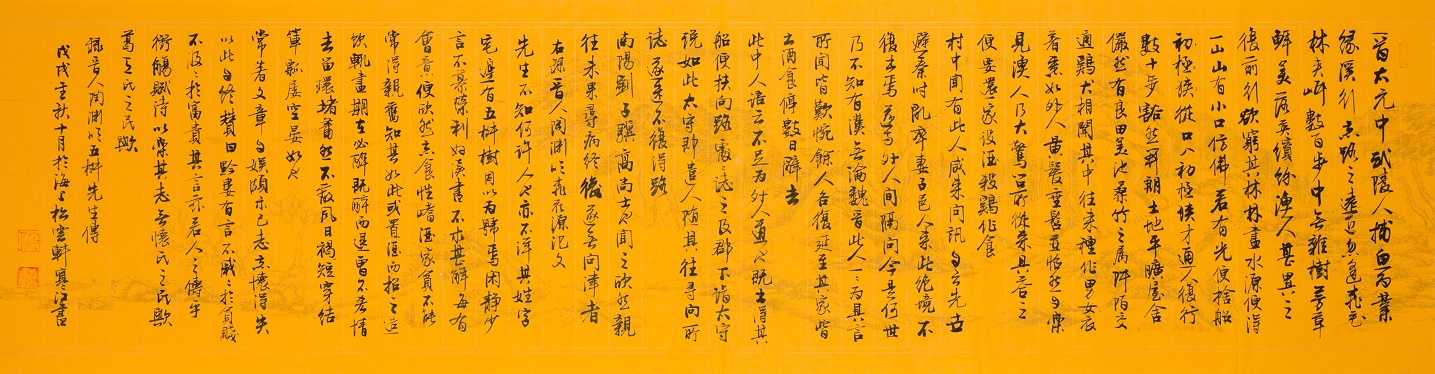 晋太元中武陵人捕鱼為業
緣溪行忘路之遠近忽逢桃花
林夹岸數百步中無雜樹芳草
鮮美落英繽紛漁人甚異之
復前行欲窮其林林盡水源便得
一山山有小口仿佛若有光便捨船
初極狹從口入初極狹才通人復行
數十步豁然開朗土地平曠屋舍
儼然有良田美池桑竹之属阡陌交
通鷄犬相聞其中往來種作男女衣
着悉如外人黄髮垂髫並怡然自樂
見漁人乃大驚問所從來具答之
便要還家設酒殺鷄作食
村中聞有此人咸來問訊自云先世
避秦時亂率妻子邑人來此绝境不
復出焉遂与外人间隔問今是何世
乃不知有漢無論魏晉此人一一為具言
所聞皆歎惋餘人各復延至其家皆
出酒食停數日辭去
此中人语云不足為外人道也既出得其
船便扶向路處處誌之及郡下詣太守
说如此太守即遣人随其往尋向所
誌遂迷不復得路
南陽劉子驥高尚士也聞之欣然親
往未果尋病终後遂無問津者
右録晋人陶渊明桃花源记文
先生不知何許人也亦不详其姓字
宅邊有五柳樹因以為號焉闲静少
言不慕榮利好讀書不求甚解每有
會意便欣然忘食性嗜酒家貧不能
常得親舊知其如此或置酒而招之造
饮輒盡期在必醉既醉而退曾不吝情
去留環堵蕭然不蔽风日褐短穿结
簞瓢屢空晏如也
常著文章自娱颇示己志忘懷得失
以此自终贊曰黔婁有言不戚戚於貧賤
不汲汲於富貴其言亦若人之儔乎
衔觴赋诗以樂其志無懷氏之民歟
葛天氏之民歟
録晋人陶渊明五柳先生傳
戊戌孟秋十月於海上松雲軒寒江書